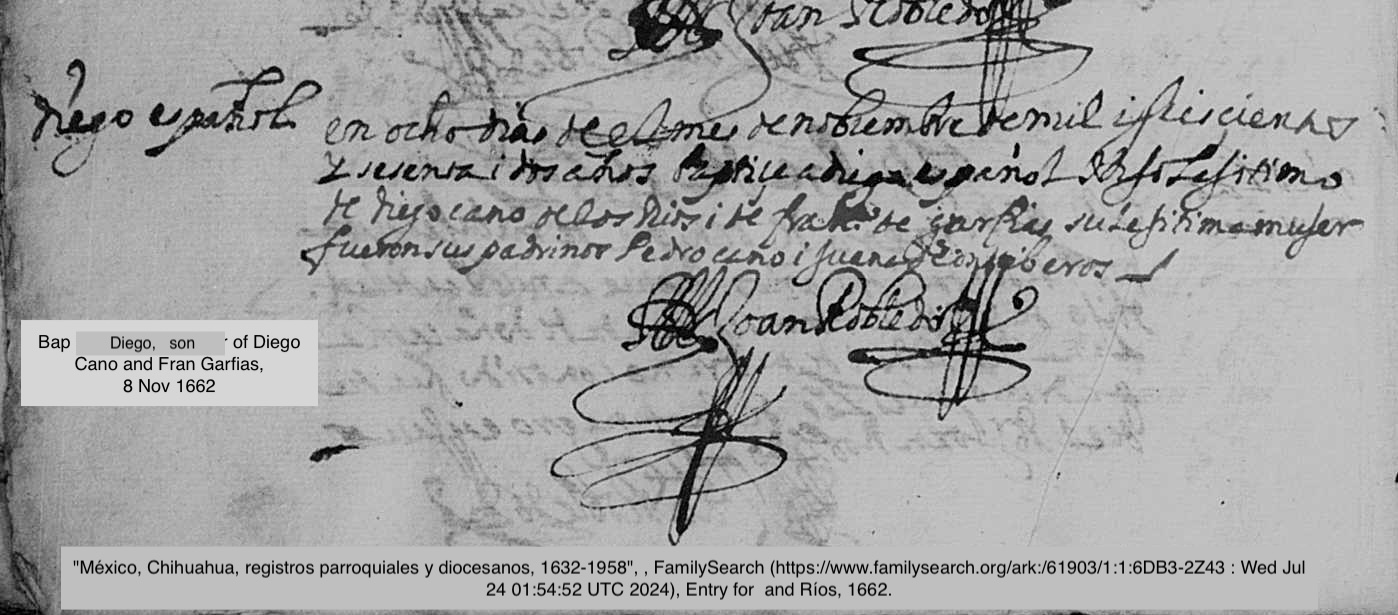 Joan Robledo
diego español
en ocho dias de el mes de nobiembre de mil i seiscientos
y sesenta i dos años baptice a diego español Hijo Lesitimo
de diego cano de los Rios i de fran.ca de garfias su Lesitima mujer
fueron sus padrinos Pedro cano i juana de
Joan Robledo
Bap Diego, son r of Diego
Cano and Fran Garfias,
8 Nov 1662
"México, Chihuahua, registros parroquiales y diocesanos, 1632-1958", , FamilySearch (https://www.familysearch.org/ark:/61903/1:1:6DB3-2Z43 : Wed Jul
24 01:54:52 UTC 2024), Entry for and Ríos, 1662.